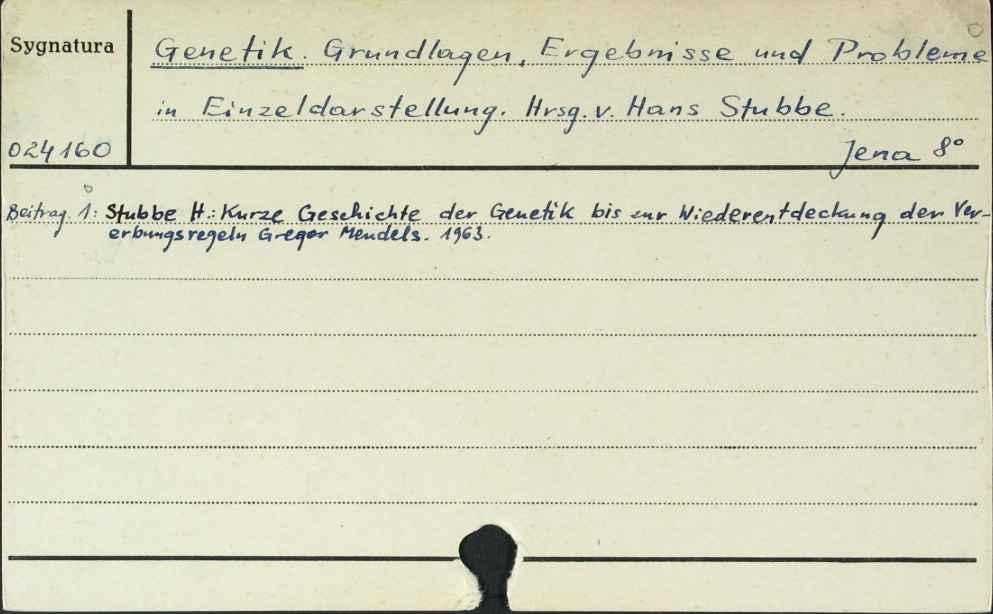 Sygnatura
Genetik. Grundlagen, Ergebnisse und Probleme
in Einzeldarstellung. Hrsg. v. Hans Stubbe.
024160
Jena 8°
Beitrag. 1: Stubbe H.: Kurze Geschichte der Genetik bis zur Wiederentdeckung der Ver-
erbungsregeln Gregor Mendels. 1963.